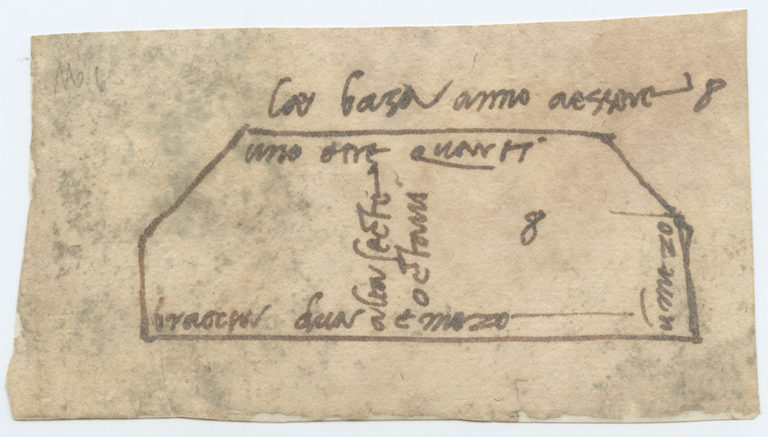 le baze anno aessere 8
uno etre quarti
alta setti
octavi
8
braccia dua e mezo
un mezo